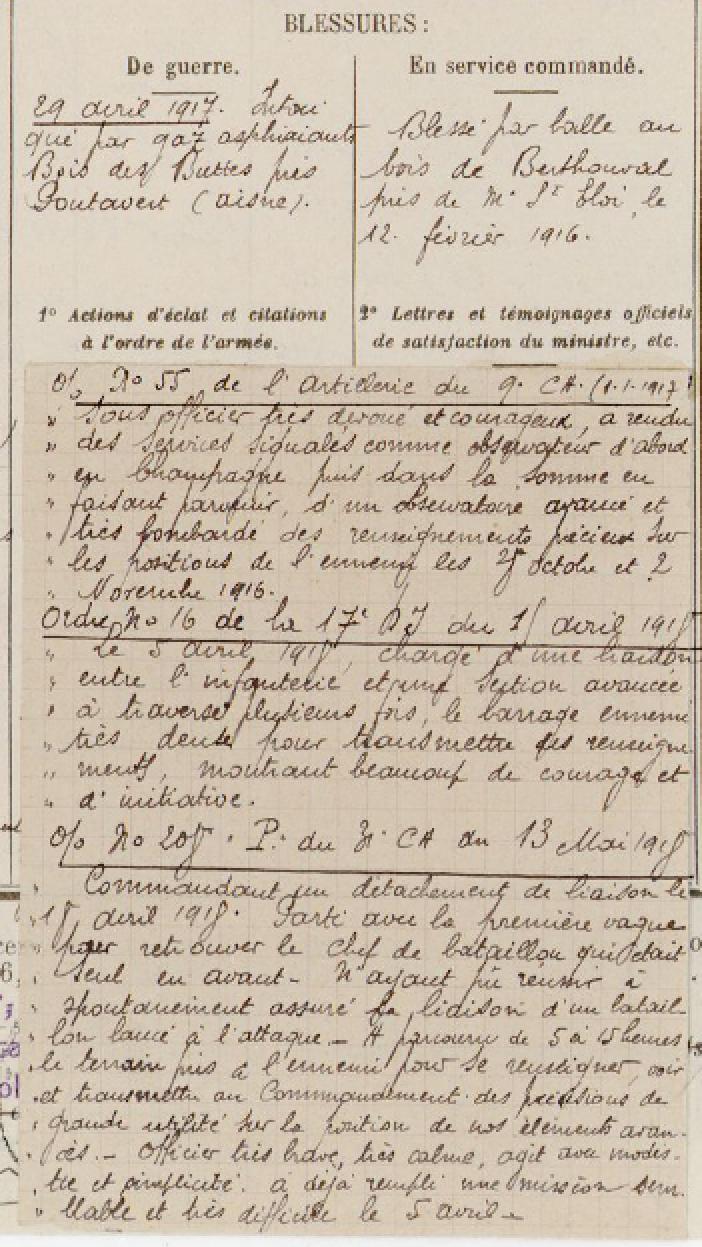 BLESSURES :
De guerre.
29 avril 1917. Intoxi
qué par gaz asphixiants
Bois des Buttes près
Pontavert (Aisne).
En service commandé.
Blessé par balle au
bois de Berthonval
près de Mt St Eloi, le
12. février 1916.
1° Actions d'éclat et citations
à l'ordre de l'armée.
2° Lettres et témoignages officiels
de satisfaction du ministre, etc.
o/o No 55 de l'Artillerie du 9e CA. (1-1-1917)
" Sous officier très dévoué et courageux, a rendu
" des services signalés comme observateur d'abord
" en Champagne puis dans la Somme en
" faisant parvenir, d'un observatoire avancé et
" très bombardé des renseignements précieux sur
" les positions de l'ennemi les 28 octobre et 2
" Novembre 1916.
Ordre No 16 de la 17e DI du 18 avril 1918
" Le 5 avril 1918, chargé d'une liaison
" entre l'infanterie et une section avancée
" à traversé plusieurs fois, le barrage ennemi
" très dense pour transmettre des renseigne
" ments, montrant beaucoup de courage et
" d'initiative.
o/o No 208 . P. du CA du 13 Mai 1918
" Commandant un détachement de liaison le
" 18 avril 1918. Parti avec la première vague
" pour retrouver le chef de bataillon qui était
" seul en avant - N'ayant pu réunir à
" spontanément assuré la liaison d'un batail-
" lon lancé à l'attaque - A parcouru de 5 à 15 heures
" le terrain pris à l'ennemi pour se renseigner, voir
" et transmettre au Commandement des précisions de
" grande utilité sur la position de nos éléments avan-
" cés. - Officier très brave, très calme, agit avec modes-
" tie et simplicité. a déjà rempli une mission sem.
" blable et très difficile le 5 avril -